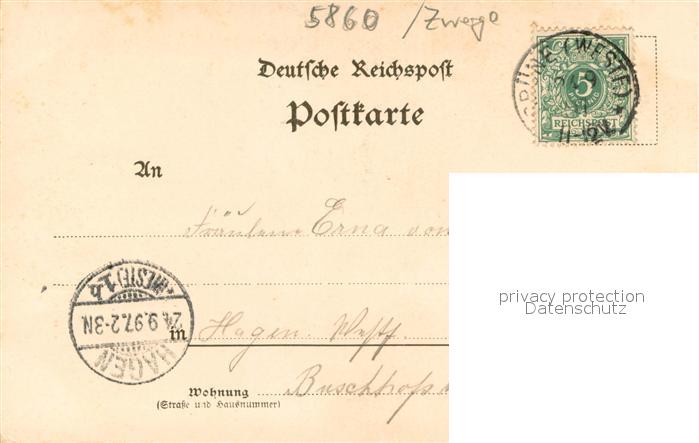 5860 /Zwerge
Deutsche Reichspost
Postkarte
GRÜNE (WESTF)
11-12V
5
REICHSPOST
An
Fräulein Erna von
privacy protection
Datenschutz
HAGEN
(WESTF) 1b
24.9.97.2-3N
in Hagen Westf
Wohnung
(Straße und Hausnummer)